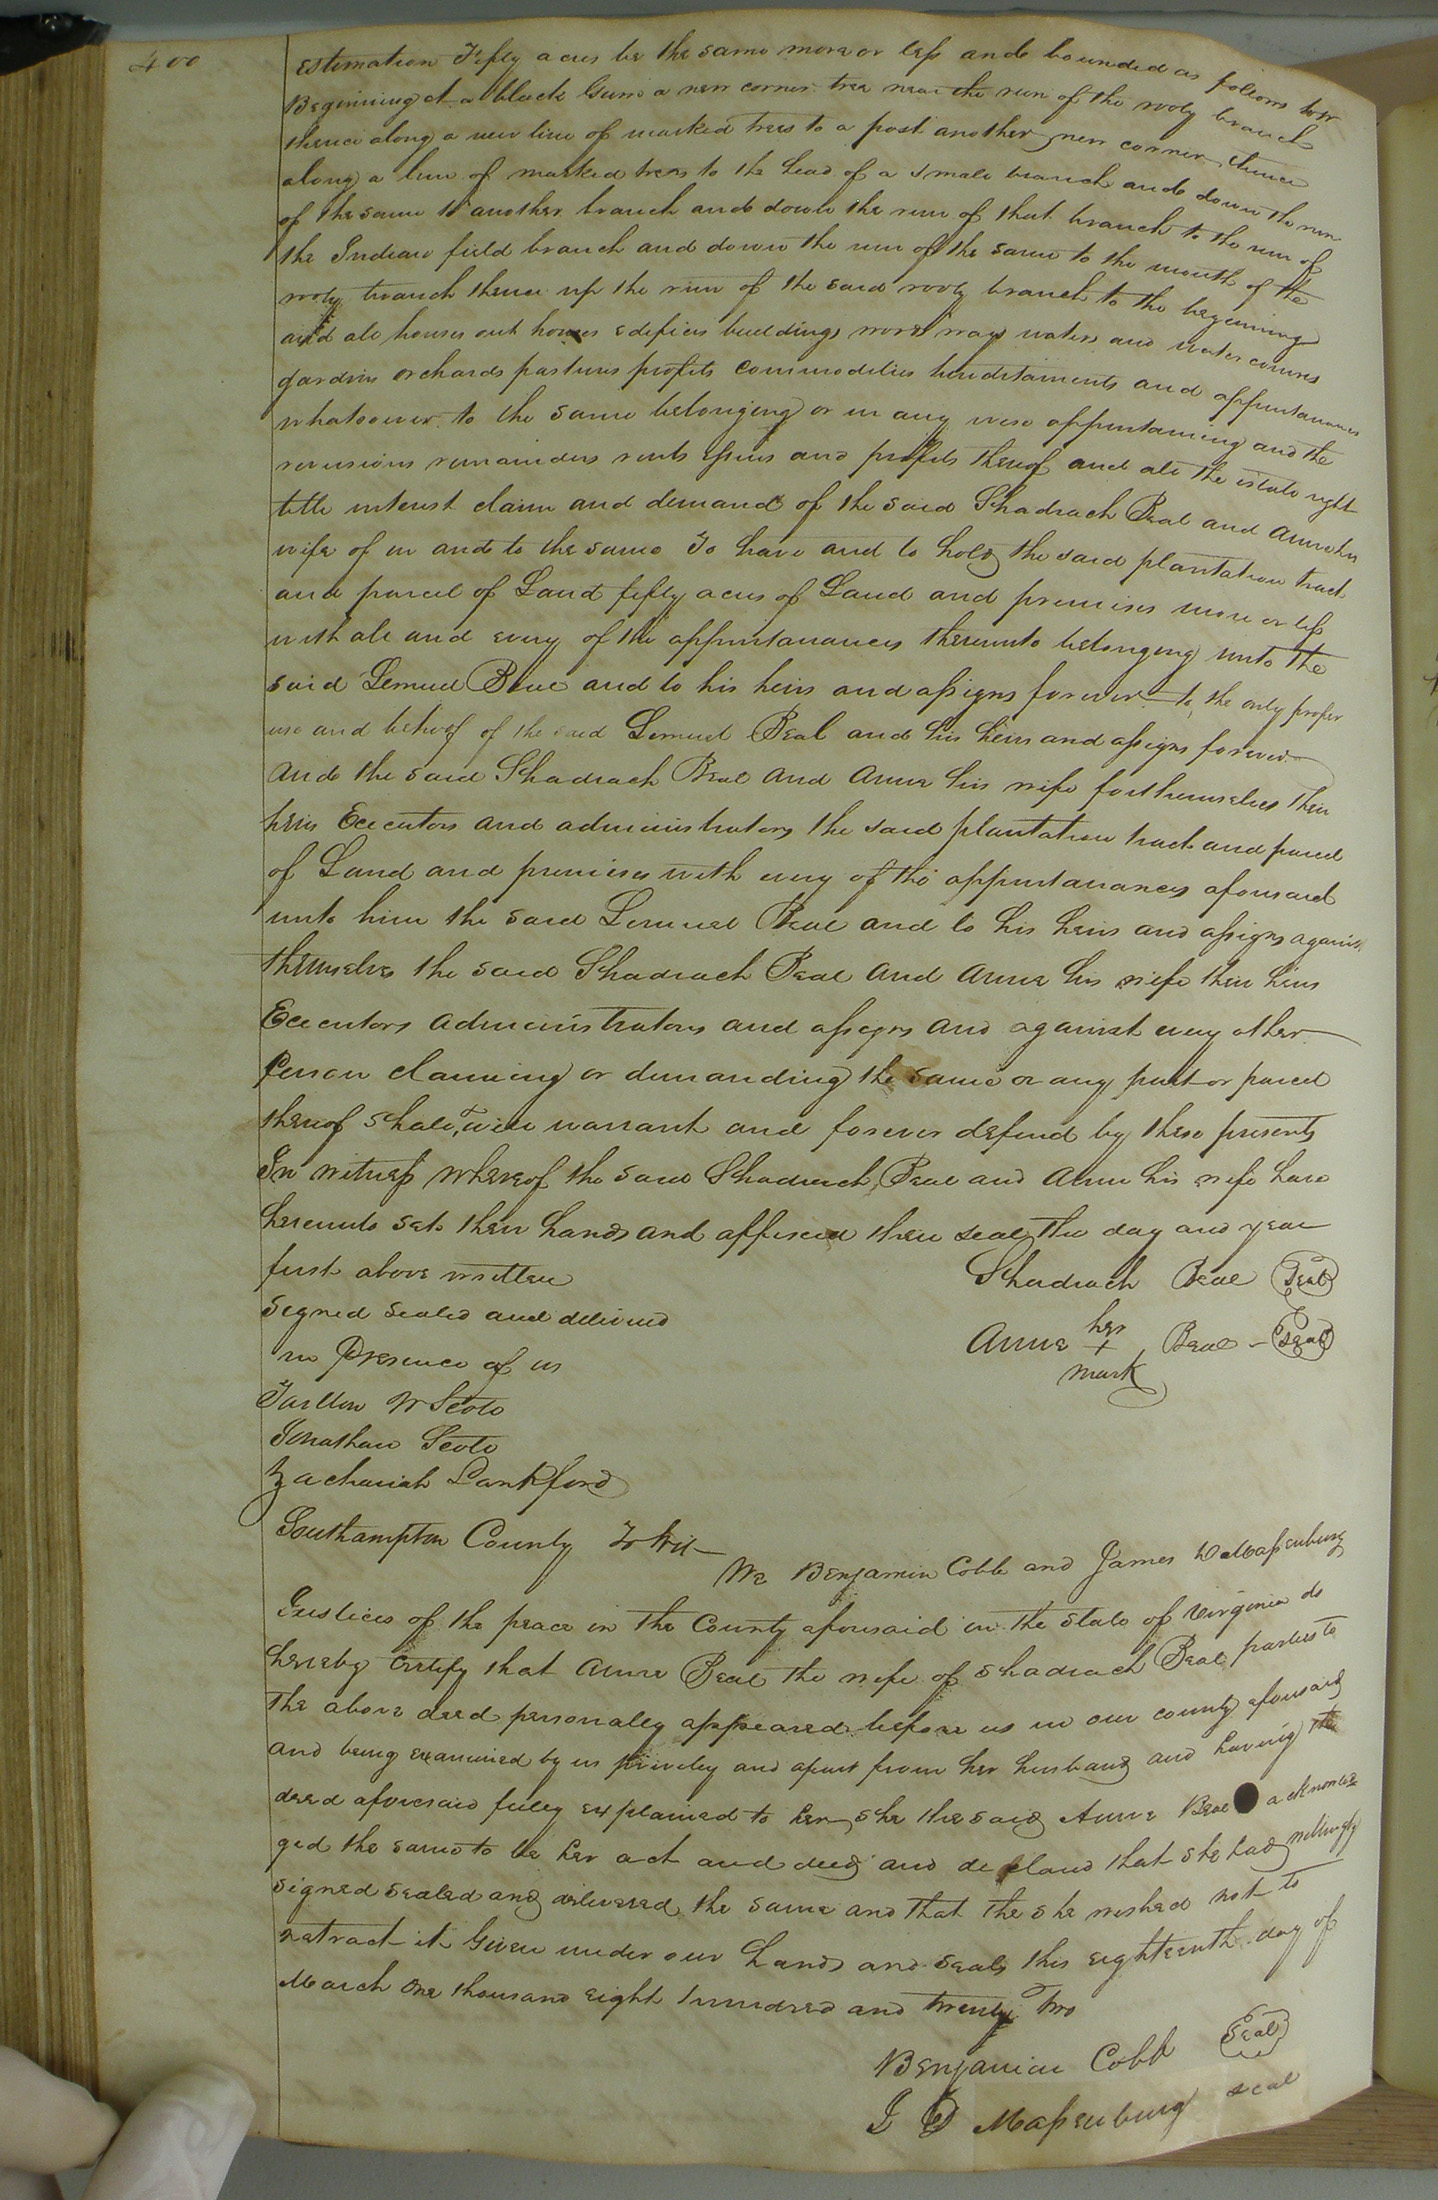 400
estimation Fifty acres be the same more or less and bounded as follows towit
Beginning at a black Gum a new corner tree near the run of the rooty branch
thence along a new line of marked trees to a post another new corner thence
along a line of marked trees to the head of a small branch and down the run
of the same to another branch and down the run of that branch to the run of
the Indian field branch and down the run of the same to the mouth of the
rooty branch thence up the run of the said rooty branch to the beginning
and all houses out houses edifices buildings woods ways waters and water courses
gardins orchards pastures profits commodities hereditaments and appurtanances
whatsoever to the same belonging or in any wise appurtaining and the
reversions remainders rents issues and profits thereof and all the estate right
title interest claim and demand of the said Shadrach Beal and Anne his
wife of in and to the same To have and to hold the said plantation tract
and parcel of Land fifty acres of Land and premises more or less
with all and every of the appurtanances thereunto belonging unto the
said Lemuel Beal and to his heirs and assigns forever to the only proper
use and behoof of the said Lemuel Beal and his heirs and assigns forever
and the said Shadrach Beal and Anne his wife for themselves their
heirs Executors and administrators the said plantation tract and parcel
of Land and premises with every of the appurtanances aforesaid
unto him the said Lemuel Beal and to his heirs and assigns against
themselves the said Shadrach Beal and Anne his wife their heirs
Executors administrators and assigns and against every other
person claiming or demanding the same or any part or parcel
thereof shall & will warrant and forever defend by these presents
In witness whereof the said Shadrach Beal and Anne his wife have
hereunto set their hands and affixed their seal the day and year
first above written Shadrach Beal Seal
Signed sealed and delivered
her
in Presence of us Anne + Beal - Seal
mark
Tarlton W Scott
Jonathan Scott
Zachariah Lankford
Southampton County To Wit
We Benjamin Cobb and James D Massenburg
Justices of the peace in the County aforesaid in the State of Virginia do
hereby certify that Anne Beal the wife of Shadrach Beal parties to
the above deed personally appeared before us in our county aforesaid
and being examined by us privily and apart from her husband and having the
deed aforesaid fully explained to her she the said Anne Beal acknowle
ged the same to be her act and deed and declared that she had willingly
signed sealed and delivered the same and that the she wished not to
retract it Given under our hands and seals this eighteenth day of
March one thousand eight hundred and twenty two
Benjamin Cobb Seal
J D Massenburg seal